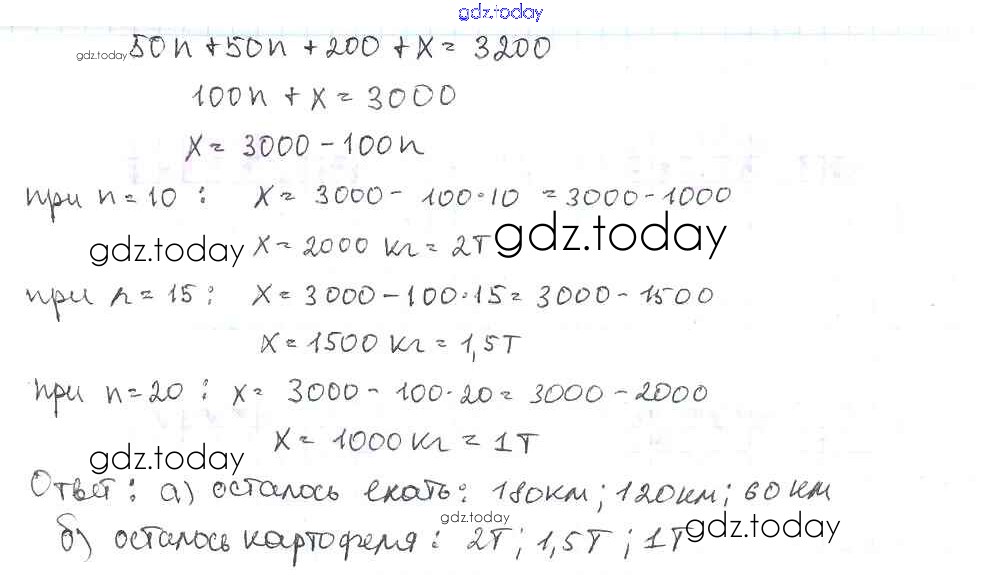 gdz.today
gdz.today 50n + 50n + 200 + x = 3200
100n + x = 3000
x = 3000 - 100n
при n = 10 : x = 3000 - 100·10 = 3000 - 1000
gdz.today x = 2000 кг = 2т gdz.today
при n = 15 : x = 3000 - 100·15 = 3000 - 1500
x = 1500 кг = 1,5т
при n = 20 : x = 3000 - 100·20 = 3000 - 2000
x = 1000 кг = 1т
gdz.today
Ответ: а) осталось ехать: 180км; 120км; 60 км
gdz.today
б) осталось картофеля: 2т; 1,5т; 1т gdz.today